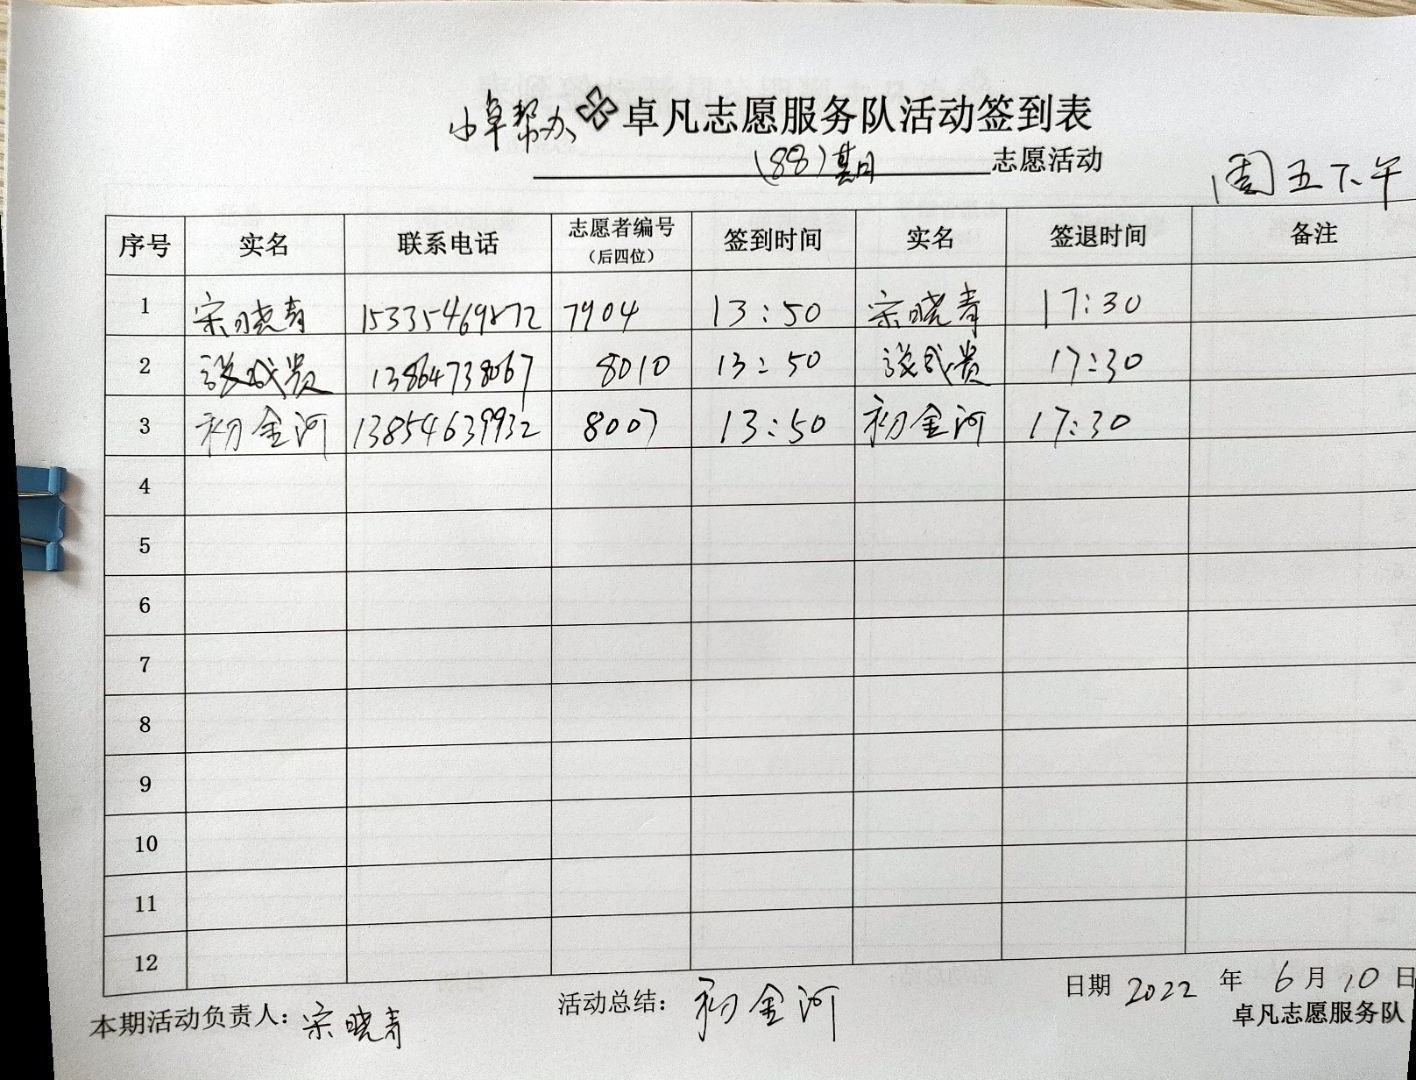 小卓帮办 卓凡志愿服务队活动签到表
(88)期 志愿活动
周五下午
序号 实名 联系电话 志愿者编号(后四位) 签到时间 实名 签退时间 备注
1 宋晓青 15335469872 7904 13:50 宋晓青 17:30
2 谈成贵 13864738067 8010 13:50 谈成贵 17:30
3 初金河 13854639932 8007 13:50 初金河 17:30
4
5
6
7
8
9
10
11
12
本期活动负责人: 宋晓青 活动总结: 初金河 日期 2022 年 6 月 10 日
卓凡志愿服务队